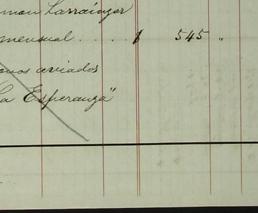 man Larrainzar
mensual . . . . $ 545 "
anos aviados
La Esperanza"